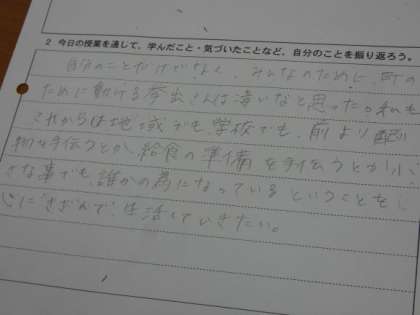 2 今日の授業を通して、学んだこと・気づいたことなど、自分のことを振り返ろう。
自分のことだけでなく、みんなのために、町の
ために動ける李出さんは凄いなと思った。私も
これからは地域でも、学校でも、前より配
物を手伝うとか、給食の準備を手伝うとか小
さな事でも、誰かの為になっているということを
心にきざんで、生活していきたい。